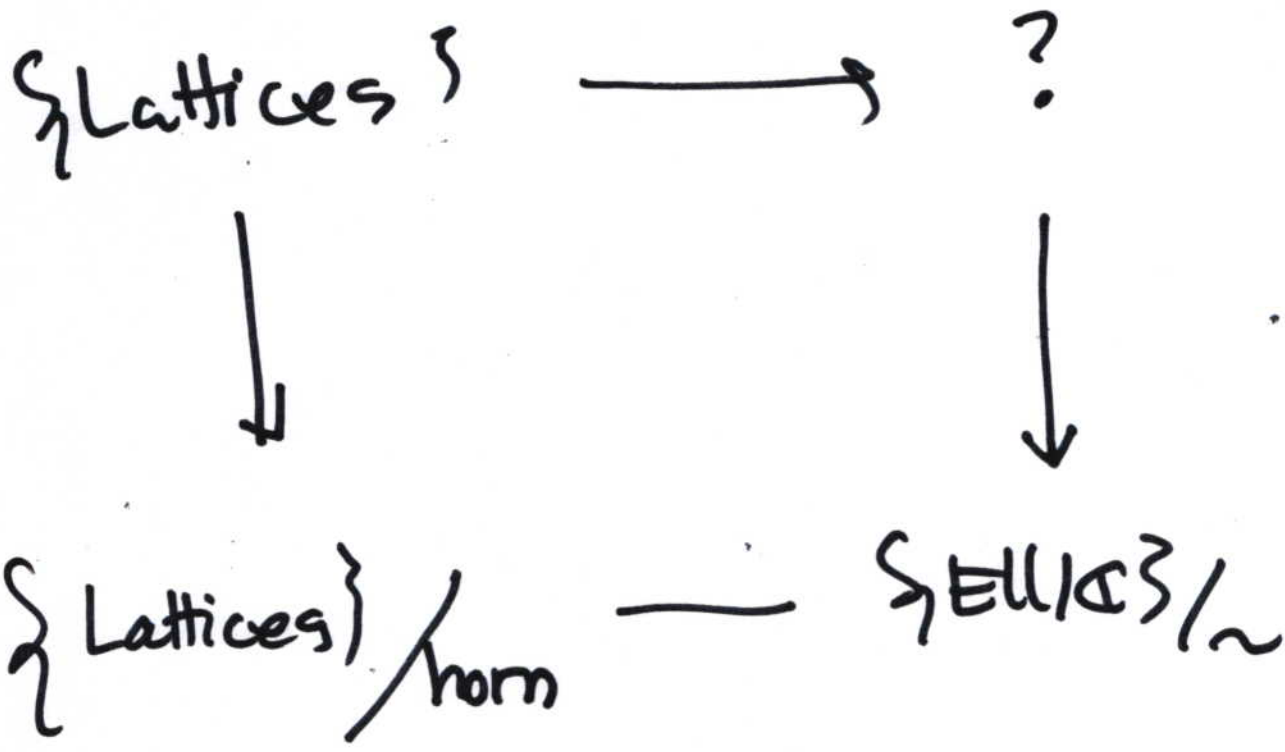 {Lattices} → ?
{Lattices}/hom — {Ell/ℂ}/~